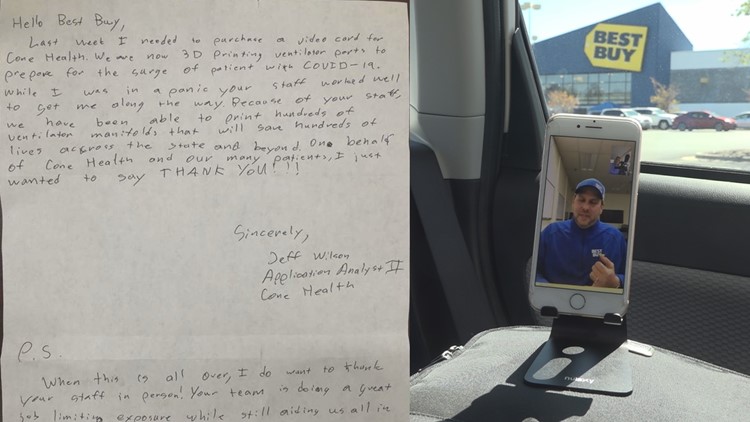 Hello Best Buy,
Last week I needed to purchase a video card for
Cone Health. We are now 3D printing ventilator parts to
prepare for the surge of patient with COVID-19.
While I was in a panic your staff worked well
to get me along the way. Because of your staff,
we have been able to print hundreds of
ventilator manifolds that will save hundreds of
lives accross the state and beyond. On behalf
of Cone Health and our many patients, I just
wanted to say THANK YOU!!!
Sincerely,
Jeff Wilson
Application Analyst II
Cone Health
P.S.
When this is all over, I do want to thank
your staff in person! Your team is doing a great
job limiting exposure while still aiding us all in
BEST
BUY
BEST
BUY